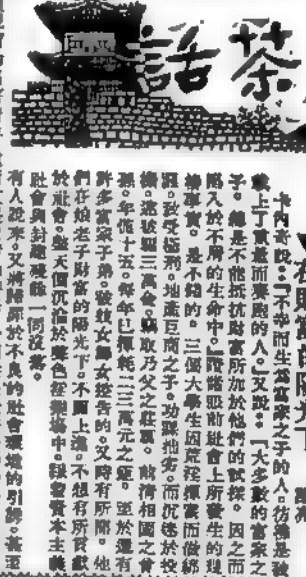 茶話
卡內奇說：「不幸而生爲富家之子的人，彷彿是被
戴上了重量而賽跑的人。」又說：「大多數的富家之
子，總是不能抵抗財富所加於他們的試探，因之而
陷入於不屑的生命中。」證諸眼前社會上所發生的
事實，是不錯的。三個大學生因荒淫揮霍而做綁
，致受極刑。地產巨商之子，功課拙劣，而沉迷於投
三萬金，竊取乃父之莊票。前清相國之曾
孫，年僅十五，每年已揮耗二三萬元之鉅。至於還有
許多富家子弟，被妓女舞女控告的，又時有所聞。他
們在娘老子財富的陽光下，不圖上進，不問有所貢獻
於社會，整天價沉淪於聲色的場中，跟着資本主義
社會與封建殘餘一同沒落。
有人說來，又將歸咎於不良的社會環境的引誘，甚至